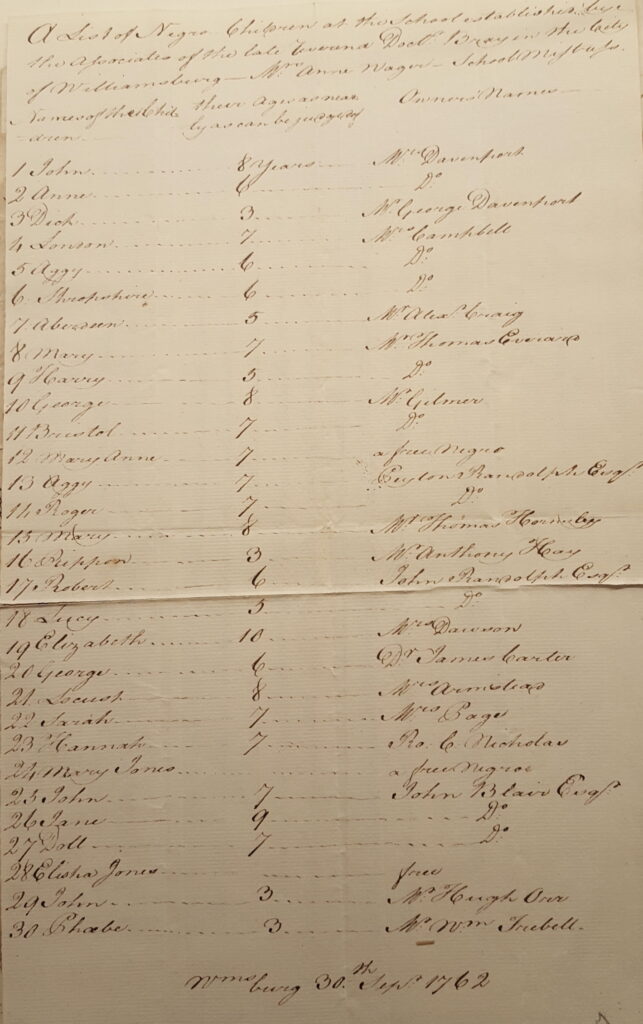 A List of Negro Children at the School established by
the Associates of the late Reverend Doctr. Bray in the City
of Williamsburg — Mrs. Anne Wager — School Mistress.
Names of the Chil their Ages as near Owners Names —
dren ly as can be judged of
1 John 8 Years Mrs Davenport
2 Anne 6 Do.
3 Dick 3 Mr George Davenport
4 London 7 Mrs Campbell
5 Aggy 6 Do.
6 Shropshire 6 Do.
7 Aberdeen 5 Mr Alexr. Craig
8 Mary 7 Mr Thomas Everard
9 Harry 5 Do.
10 George 8 Mr Gilmer
11 Bristol 7 Do.
12 Mary Anne 7 a free Negro
13 Aggy 7 Peyton Randolph Esqr.
14 Roger 7 Do.
15 Mary 8 Mr Thomas Hornsby
16 Rippon 3 Mr Anthony Hay
17 Robert 6 John Randolph Esqr.
18 Lucy 5 Do.
19 Elizabeth 10 Mrs Dawson
20 George 6 Dr James Carter
21 Locust 8 Mrs Armstead
22 Sarah 7 Mrs Page
23 Hannah 7 Ro. C. Nicholas
24 Mary Jones a free Negroe
25 John 7 John Blair Esqr.
26 Jane 9 Do.
27 Doll 7 Do.
28 Elisha Jones free
29 John 3 Mr Hugh Orr
30 Phoebe 3 Mr. Wm Trebell.
Wmsburg 30.th Sepr. 1762